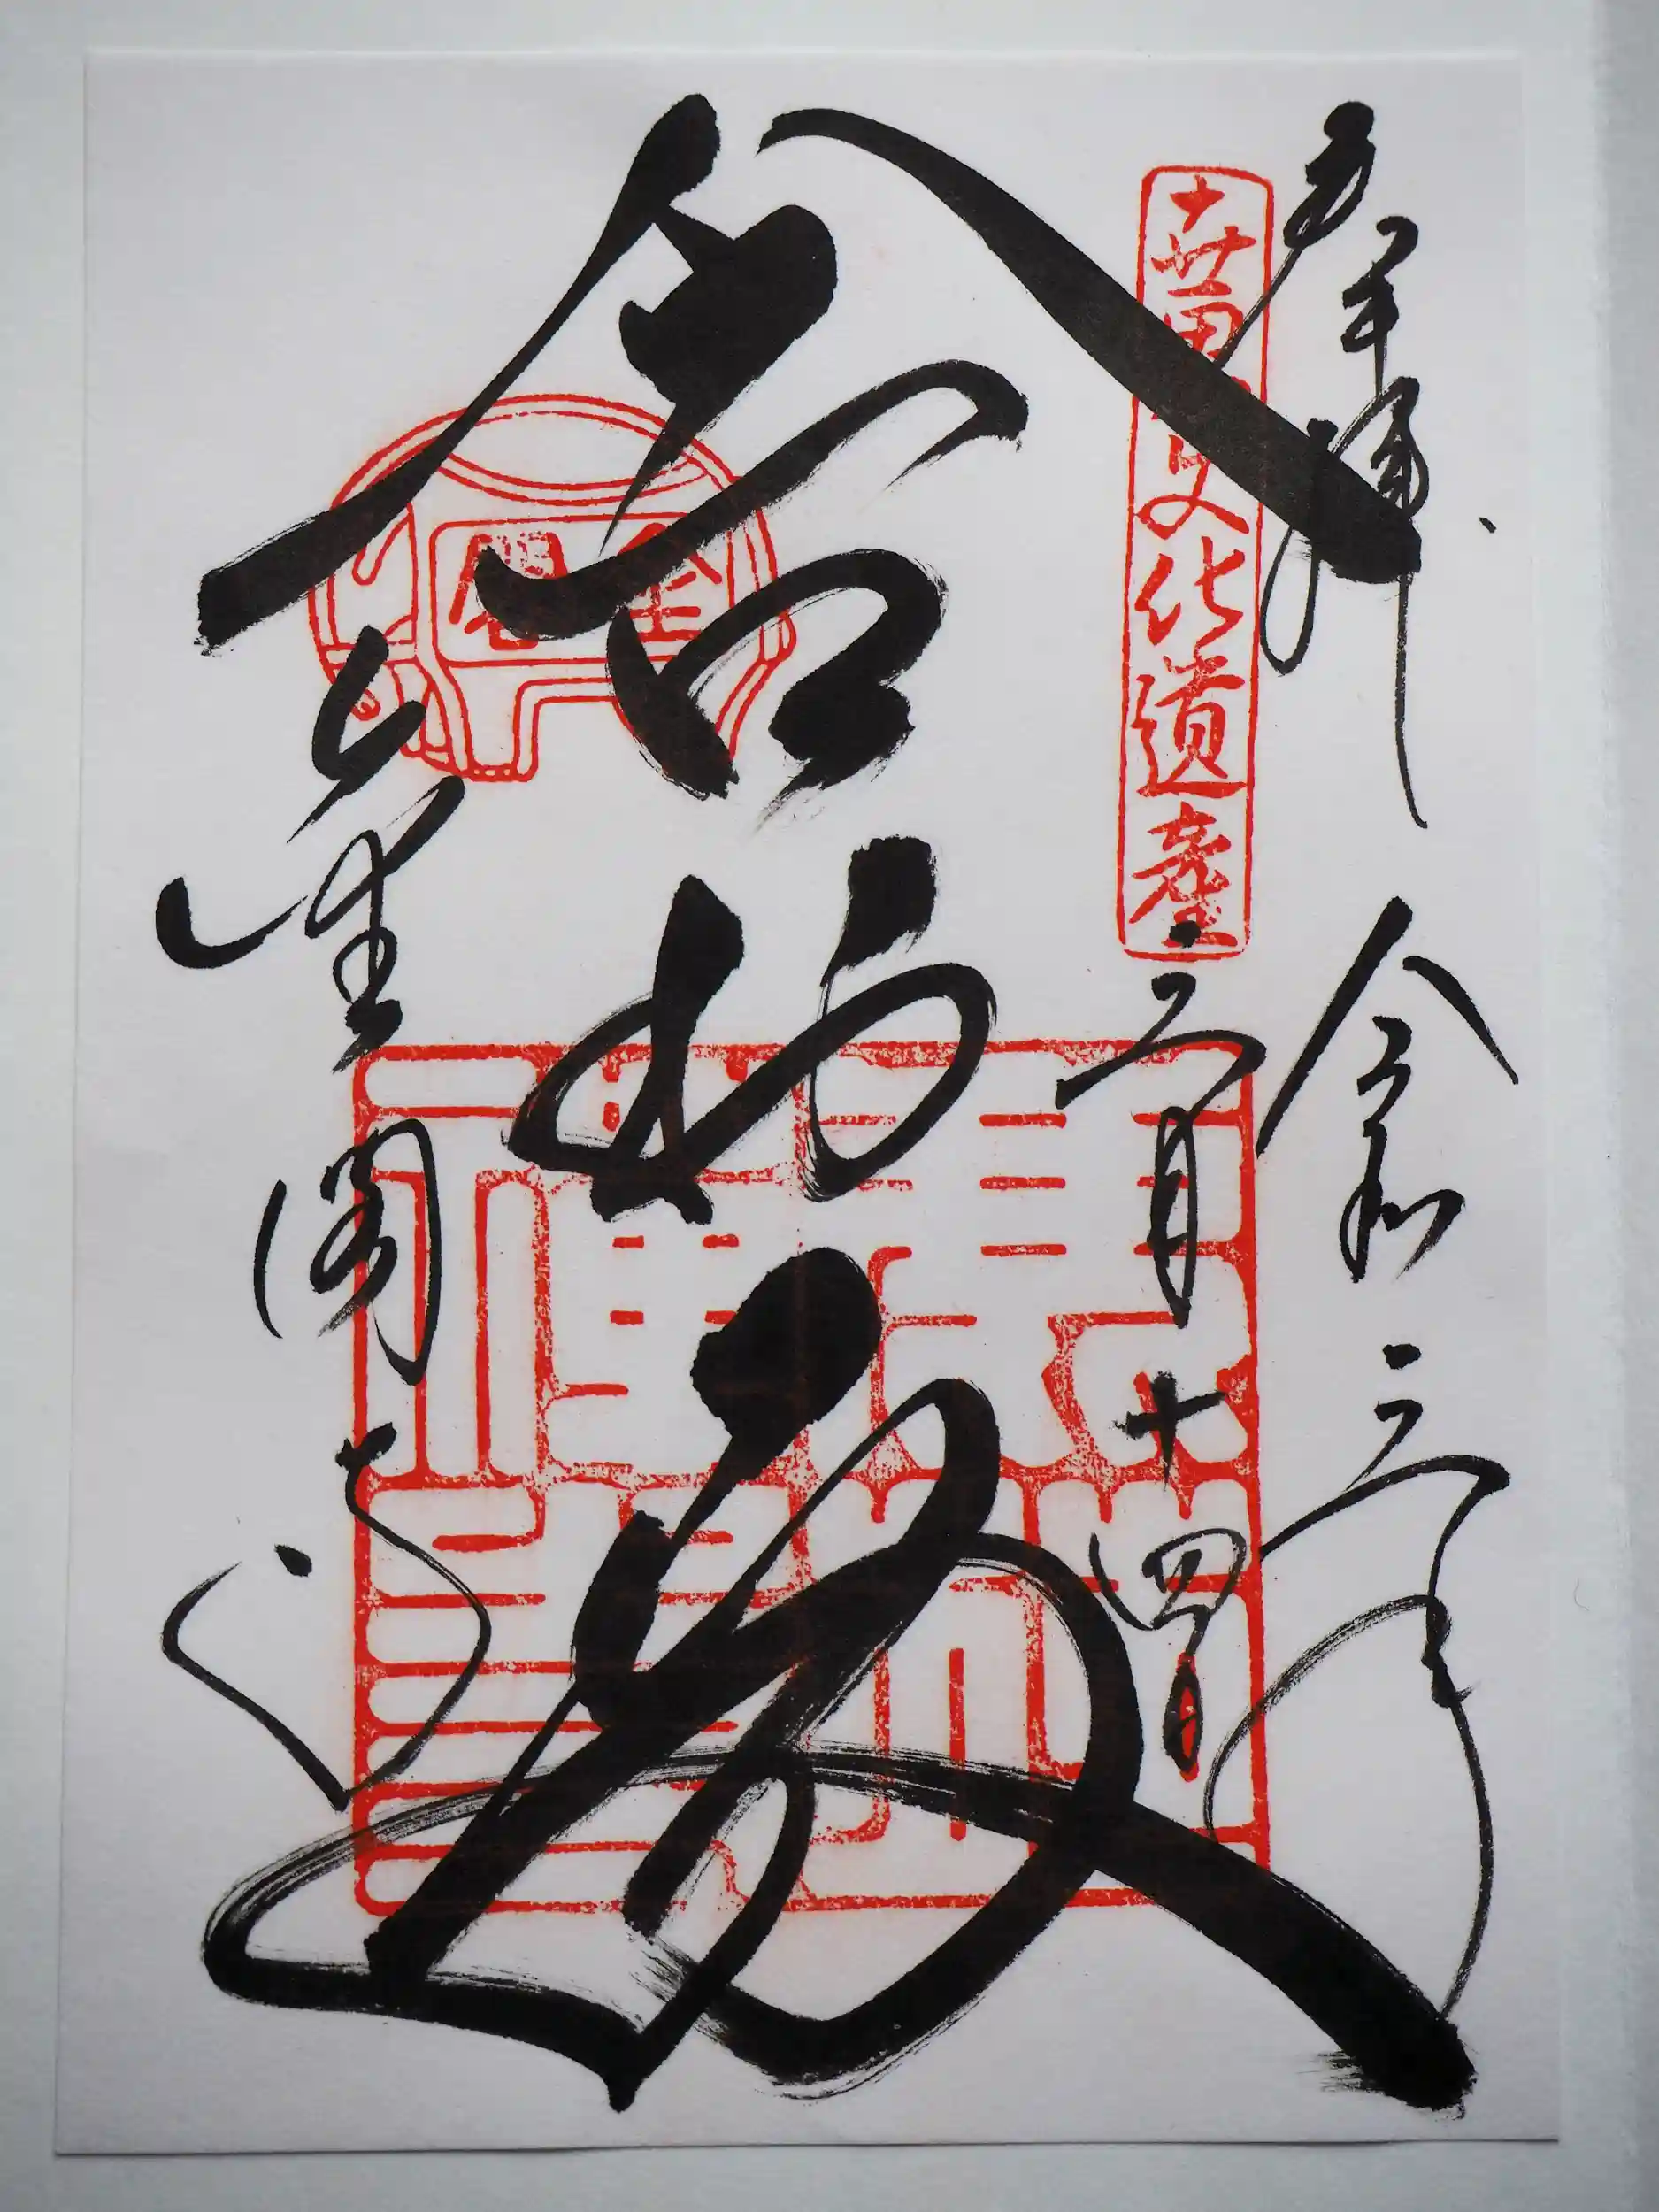 奉拝
令和三年
世界文化遺産
三月十四日
舎利殿
金閣
金閣寺